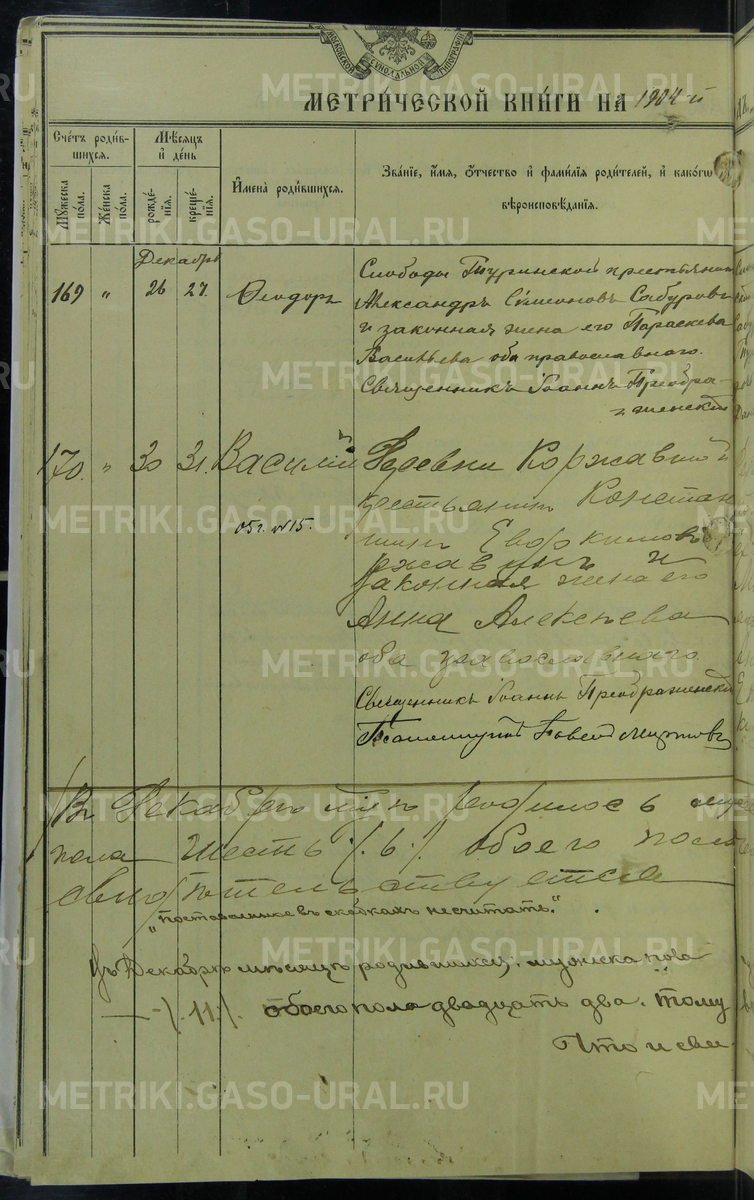 МОСКОВСКОЙ СѴНОДАЛЬНОЙ ТИПОГРАФІИ
МЕТРИ́ЧЕСКОЙ КНИ́ГИ НА 1904-й
Счétъ роди́в-
шихся.
Мѣ́сяцъ
и҆ де́нь
И҆мена̀ роди́вшихся.
Зва́нїе, и҆́мѧ, ѻ҆́тчество и҆ фами́лїѧ роди́телей, и҆ како́гѡ
вѣроисповѣ́данїѧ.
Му́жеска по́ла.
Же́нска по́ла.
рожде́-нїѧ.
креще́-нїѧ.
Декабрь
169 " 26 27. Ѳеодоръ
Слободы Туринской крестьянинъ
Александръ Сѵмеоновъ Сабуровъ
и законная жена его Параскева
Васильева оба православнаго.
Священникъ Іоаннъ Преобра-
женскій
170. " 30 31. Василій Деревни Коржавиной
крестьянинъ Констан
05 г. №15.
тинъ Евдокимовъ
ржавинъ и
законная жена его
Анна Алексѣева
оба православнаго
Священникъ Іоаннъ Преображенскій
Псаломщикъ
Въ Декабрѣ родилось муж
пола шесть /.6./ обоего пола
свидѣтельствуется
"поставленное въ скобкахъ несчитать."
Въ Декабрѣ мѣсяцѣ родившихся: мужска пола
— ./.11./. обоего пола двадцать два. тому
Что и сви-
METRIKI.GASO-URAL.RU